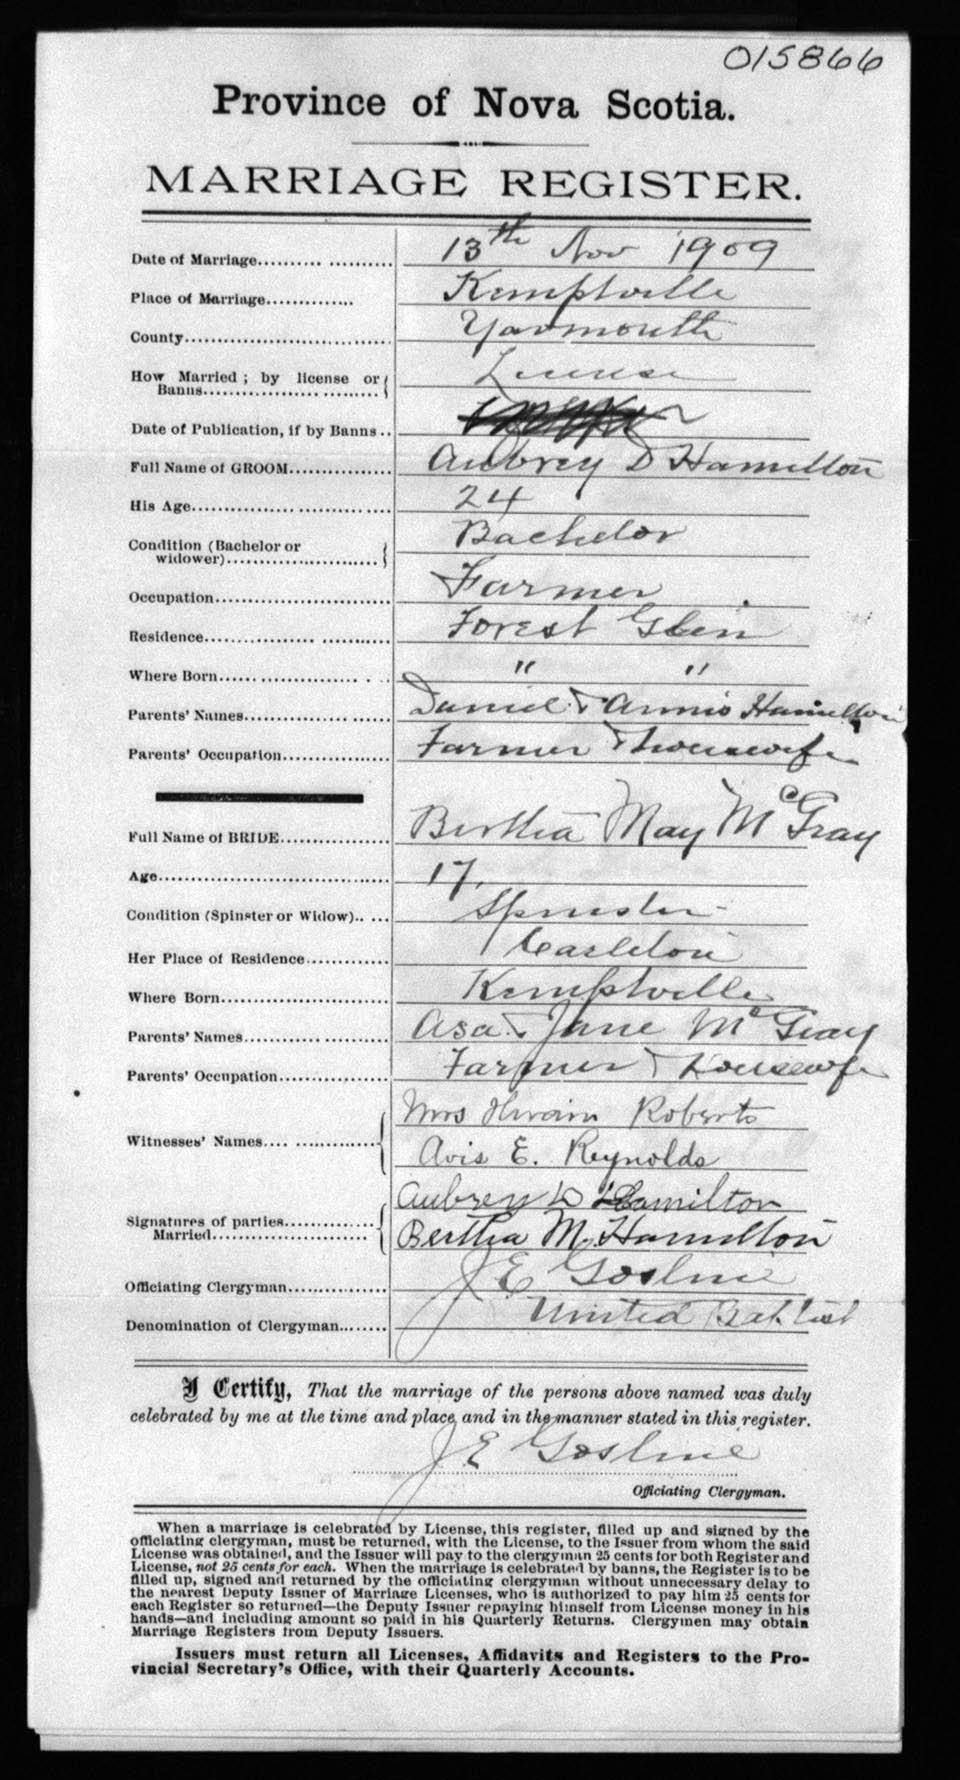 015866
Province of Nova Scotia.
MARRIAGE REGISTER.
Date of Marriage.......... .......... 13th Nov 1909
Place of Marriage.............. Kemptville
County................................. Yarmouth
How Married ; by license or License
Banns.................... .........
Date of Publication, if by Banns ..
Full Name of GROOM................ Aubrey D Hamilton
His Age................ .......... ... 24
Condition (Bachelor or Bachelor
widower)............................
Occupation............................ Farmer
Residence................. ........... Forest Glen
Where Born..... ................ . ... " "
Parents' Names.............. ........ Daniel & Annis Hamilton
Parents' Occupation................. Farmer & housewife
Full Name of BRIDE................. Bertha May McGray
Age..................................... 17.
Condition (Spinster or Widow).. ... Spinster
Her Place of Residence............. Carleton
Where Born........................... Kemptville
Parents' Names............ .......... Asa & Jane McGray
Parents' Occupation................. Farmer & Housewife
Mrs Hiram Roberts
Witnesses' Names.... ..............
Avis E. Reynolds
Aubrey D Hamilton
Signatures of parties..............
Married.......................... Bertha M. Hamilton
Officiating Clergyman............... J E Gosline
Denomination of Clergyman........ United Baptist
I Certify, That the marriage of the persons above named was duly
celebrated by me at the time and place, and in the manner stated in this register.
J E Gosline
Officiating Clergyman.
When a marriage is celebrated by License, this register, filled up and signed by the
officiating clergyman, must be returned, with the License, to the Issuer from whom the said
License was obtained, and the Issuer will pay to the clergyman 25 cents for both Register and
License, not 25 cents for each. When the marriage is celebrated by banns, the Register is to be
filled up, signed and returned by the officiating clergyman without unnecessary delay to
the nearest Deputy Issuer of Marriage Licenses, who is authorized to pay him 25 cents for
each Register so returned—the Deputy Issuer repaying himself from License money in his
hands—and including amount so paid in his Quarterly Returns. Clergymen may obtain
Marriage Registers from Deputy Issuers.
Issuers must return all Licenses, Affidavits and Registers to the Pro-
vincial Secretary's Office, with their Quarterly Accounts.